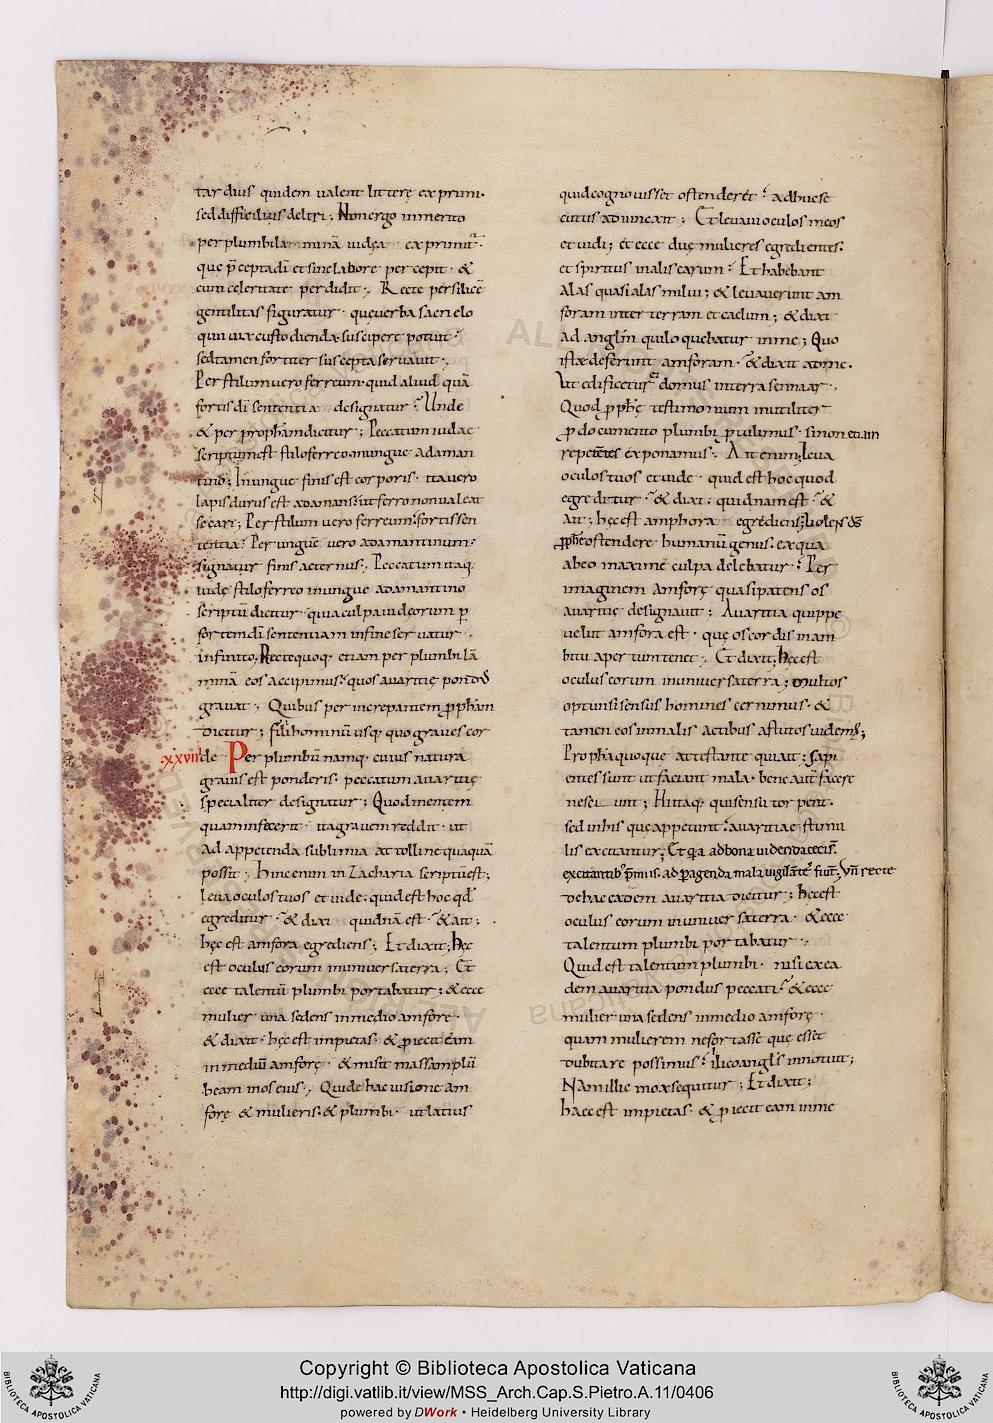 tardius quidem ualent litterę exprimi.
sed difficilius deleri; Non ergo inmerito
per plumbi lāminā iudęa exprimit̄.
quę p̄cepta dī et sine labore percepit. &
cum celeritate perdidit; Recte per silicē
gentilitas figuratur. quę uerba sacri elo
quii uix custodienda suscipere potuit.
sed tamen fortiter suscepta seruauit;
Per stilum uero ferreum. quid aliud quā
fortis dī sententia designatur? Unde
& per prophetam dicitur; Peccatum iudae
scriptum est stilo ferreo in ungue adaman
tino; In ungue finis est corporis. ita uero
lapis durus est adamans. ut ferro non ualeat
secari; Per stilum uero ferreum. fortis sen
tentia. Per unguē uero adamantinum.
signatur finis aeternus. Peccatum itaq;
iudę stilo ferreo in ungue adamantino
scriptū dicitur. quia culpa iudeorum p̱
fortem dī sententiam in fine seruatur.
infinito. Recte quoq; etiam per plumbi lā
minā eos accipimus. quos auaritię pondus
grauat; Quibus per increpantem p̱phetam
dicitur; filii hominū usq; quo graues cor
xxvii de. Per plumbū namq; cuius natura
grauis est ponderis. peccatum auaritię
specialiter designatur; Quod mentem
quam infecerit. ita grauem reddit. ut
ad appetenda sublimia attolli nequaquā
possit; Hinc enim in Zacharia scriptū est;
leua oculos tuos et uide. quid est hoc qd̄
egreditur. & dixi quidnā est. & ait;
hęc est amfora egrediens; Et dixit; hęc
est oculus eorum in uniuersa terra; Et
ecce talentū plumbi portabatur; & ecce
mulier una sedens in medio amforę.
& dixit. hęc est impietas. & p̱iecit eam
in mediū amforę. & misit massam plū
beam in os eius; Qui de hac uisione am
forę & mulieris. & plumbi. ut latius
quid cognouisset ostenderet. adhuc se
cutus adiunxit; Et leuaui oculos meos
et uidi; et ecce duę mulieres egredientes.
et spiritus in alis earum. Et habebant
alas quasi alas milui; & leuauerunt am
foram inter terram et caelum; & dixi
ad anglm̄ qui loquebatur in me; Quo
istae deferunt amforam. & dixit ad me.
Ut edificetur ei domus in terra sennaar.
Quod p̱phę testimonium inutiliter
p̱ documento plumbi p̱tulimus. si non etiam
repetentes exponamus; Ait enim; leua
oculos tuos et uide. quid est hoc quod
egreditur. & dixi. quidnam est. &
ait; hęc est amphora egrediens; uolens ds̄
p̱phę ostendere humanū genus. ex qua
abeo maxime culpa delebatur. Per
imaginem amforę quasi patens os
auaritię designauit; Auaritia quippe
uelut amfora est. quę os cordis in am
bitu apertum tenet; Et dixit; hęc est
oculus eorum in uniuersa terra; multos
optunsi sensus homines cernimus. &
tamen eos in malis actibus astutos uidemus;
Propheta quoque attestante qui ait; sapi
entes sunt ut faciant mala. bene autē facere
nescierunt; Hi itaq; qui sensu torpent.
sed in his quę appetunt. auaritiae stimu
lis excitantur; Et qui a ad bona uidenda cecis.
excitantib; p̄miis. ad p̱agenda mala uigilantes fiunt; Un̄ recte
de hac eadem auaritia dicitur; hęc est
oculus eorum in uniuersa terra. & ecce
talentum plumbi portabatur.
Quid est talentum plumbi. nisi ex ea
dem auaritia pondus peccati. & ecce
mulier una sedens in medio amforę.
quam mulierem ne fortasse quę esset
dubitare possimus. ilico angls̄ innotuit;
Nam illic mox sequitur; Et dixit;
haec est impietas. & p̱iecit eam in me
Copyright © Biblioteca Apostolica Vaticana
http://digi.vatlib.it/view/MSS_Arch.Cap.S.Pietro.A.11/0406
powered by DWork • Heidelberg University Library
BIBLIOTECA APOSTOLICA VATICANA
BIBLIOTECA APOSTOLICA VATICANA